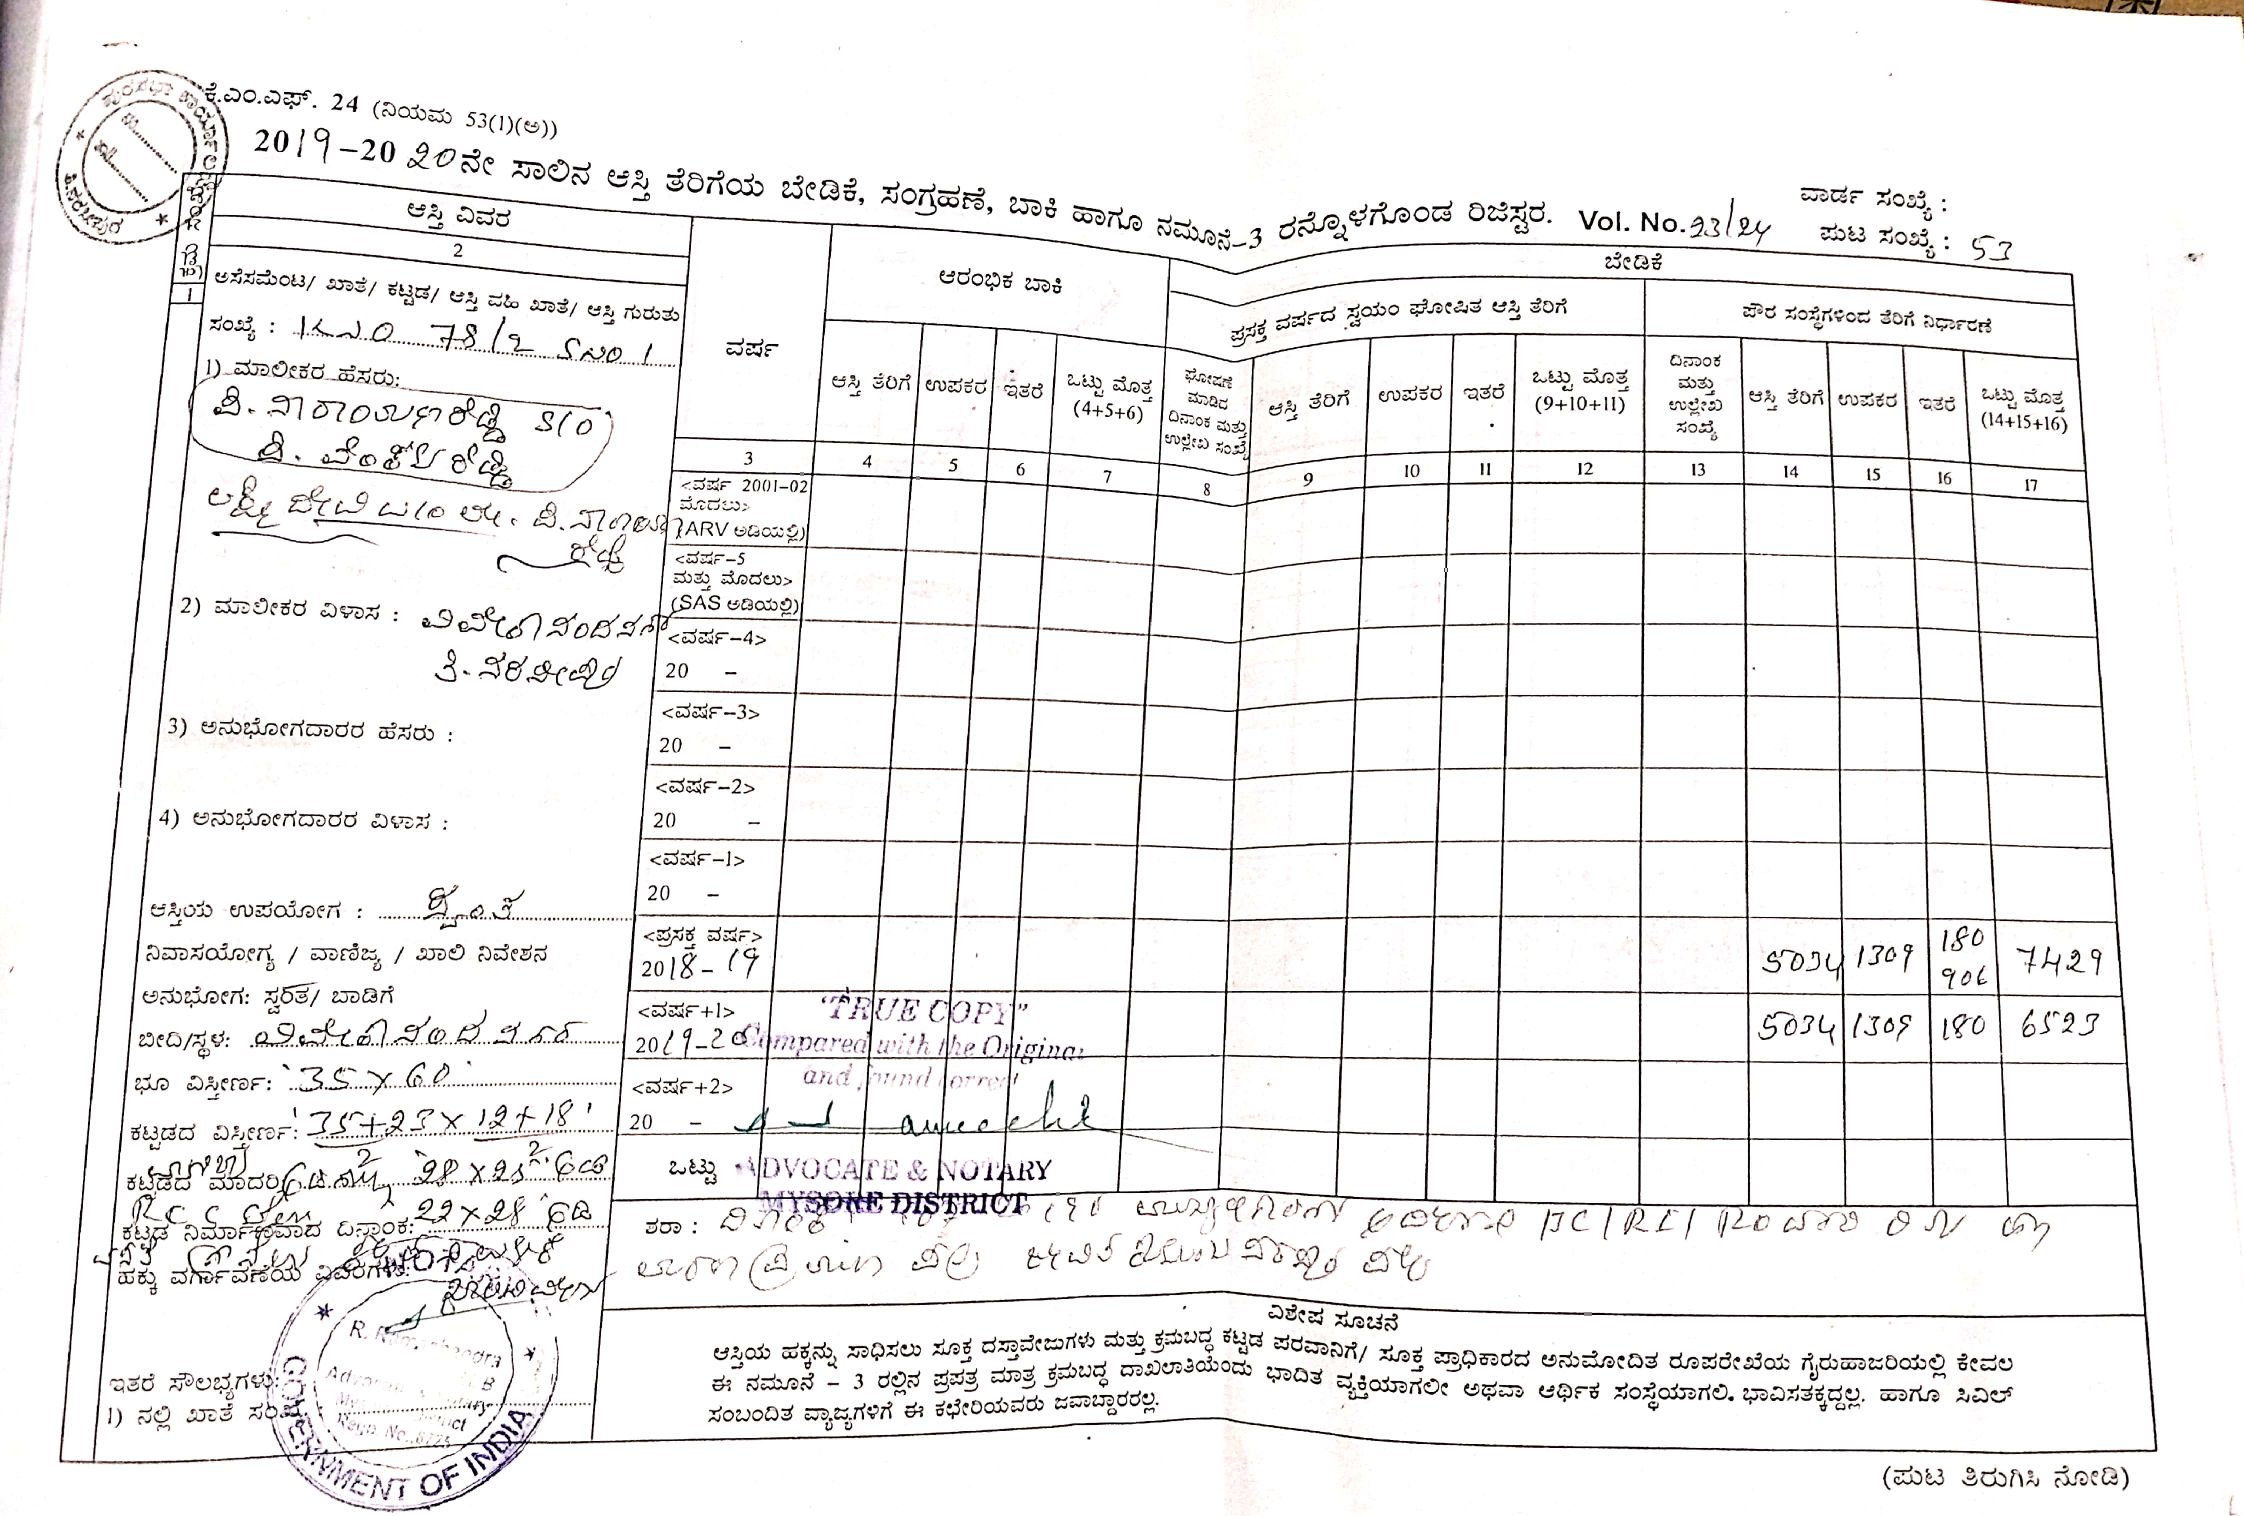 ಪುರಸಭಾ ಕಾರ್ಯಾಲಯ
ತಿ.ನರಸೀಪುರ
ಕೆ.ಎಂ.ಎಫ್. 24 (ನಿಯಮ 53(1)(ಅ))
2019-2020ನೇ ಸಾಲಿನ ಆಸ್ತಿ ತೆರಿಗೆಯ ಬೇಡಿಕೆ, ಸಂಗ್ರಹಣೆ, ಬಾಕಿ ಹಾಗೂ ನಮೂನೆ-3 ರನ್ನೊಳಗೊಂಡ ರಿಜಿಸ್ಟರ. Vol. No. 23/24
ವಾರ್ಡ ಸಂಖ್ಯೆ :
ಪುಟ ಸಂಖ್ಯೆ : 53
ಆಸ್ತಿ ವಿವರ
2
1
ಅಸೆಸಮೆಂಟ/ ಖಾತೆ/ ಕಟ್ಟಡ/ ಆಸ್ತಿ ವಹಿ ಖಾತೆ/ ಆಸ್ತಿ ಗುರುತು
ಸಂಖ್ಯೆ : 78/2
1) ಮಾಲೀಕರ ಹೆಸರು:
ವಿ. ನಾರಾಯಣರೆಡ್ಡಿ S/o
ವೆಂಕಟ ರೆಡ್ಡಿ
ಲಕ್ಷ್ಮೀದೇವಿ
ರೆಡ್ಡಿ
2) ಮಾಲೀಕರ ವಿಳಾಸ : ವಿವೇಕಾನಂದನಗರ
ತಿ. ನರಸೀಪುರ
3) ಅನುಭೋಗದಾರರ ಹೆಸರು :
4) ಅನುಭೋಗದಾರರ ವಿಳಾಸ :
ಆಸ್ತಿಯ ಉಪಯೋಗ : ಸ್ವಂತ
ನಿವಾಸಯೋಗ್ಯ / ವಾಣಿಜ್ಯ / ಖಾಲಿ ನಿವೇಶನ
ಅನುಭೋಗ: ಸ್ವಂತ/ ಬಾಡಿಗೆ
ಬೀದಿ/ಸ್ಥಳ: ವಿವೇಕಾನಂದ ನಗರ
ಭೂ ವಿಸ್ತೀರ್ಣ: 35 x 60
ಕಟ್ಟಡದ ವಿಸ್ತೀರ್ಣ: 35+23 x 12+18
ಕಟ್ಟಡದ ಮಾದರಿ:
ಕಟ್ಟಡ ನಿರ್ಮಾಣವಾದ ದಿನಾಂಕ: 22 x 28
ಹಕ್ಕು ವರ್ಗಾವಣೆಯ ವಿವರಗಳು:
ಇತರೆ ಸೌಲಭ್ಯಗಳು:
1) ನಲ್ಲಿ ಖಾತೆ ಸಂಖ್ಯೆ
ವರ್ಷ
ಆರಂಭಿಕ ಬಾಕಿ
ಬೇಡಿಕೆ
ಪ್ರಸಕ್ತ ವರ್ಷದ ಸ್ವಯಂ ಘೋಷಿತ ಆಸ್ತಿ ತೆರಿಗೆ
ಪೌರ ಸಂಸ್ಥೆಗಳಿಂದ ತೆರಿಗೆ ನಿರ್ಧಾರಣೆ
ಆಸ್ತಿ ತೆರಿಗೆ
ಉಪಕರ
ಇತರೆ
ಒಟ್ಟು ಮೊತ್ತ (4+5+6)
ಘೋಷಣೆ ಮಾಡಿದ ದಿನಾಂಕ ಮತ್ತು ಉಲ್ಲೇಖ ಸಂಖ್ಯೆ
ಆಸ್ತಿ ತೆರಿಗೆ
ಉಪಕರ
ಇತರೆ
ಒಟ್ಟು ಮೊತ್ತ (9+10+11)
ದಿನಾಂಕ ಮತ್ತು ಉಲ್ಲೇಖ ಸಂಖ್ಯೆ
ಆಸ್ತಿ ತೆರಿಗೆ
ಉಪಕರ
ಇತರೆ
ಒಟ್ಟು ಮೊತ್ತ (14+15+16)
3 4 5 6 7 8 9 10 11 12 13 14 15 16 17
<ವರ್ಷ 2001-02
ಮೊದಲು>
(ARV ಅಡಿಯಲ್ಲಿ)
<ವರ್ಷ-5
ಮತ್ತು ಮೊದಲು>
(SAS ಅಡಿಯಲ್ಲಿ)
<ವರ್ಷ-4>
20 -
<ವರ್ಷ-3>
20 -
<ವರ್ಷ-2>
20 -
<ವರ್ಷ-1>
20 -
<ಪ್ರಸಕ್ತ ವರ್ಷ>
2018-19 5034 1309 180 906 7429
<ವರ್ಷ+1>
2019-20 5034 1309 180 6523
<ವರ್ಷ+2>
20 -
ಒಟ್ಟು
"TRUE COPY"
Compared with the Original
and found correct
ADVOCATE & NOTARY
MYSORE DISTRICT
ಶರಾ :
ವಿಶೇಷ ಸೂಚನೆ
ಆಸ್ತಿಯ ಹಕ್ಕನ್ನು ಸಾಧಿಸಲು ಸೂಕ್ತ ದಸ್ತಾವೇಜುಗಳು ಮತ್ತು ಕ್ರಮಬದ್ಧ ಕಟ್ಟಡ ಪರವಾನಿಗೆ/ ಸೂಕ್ತ ಪ್ರಾಧಿಕಾರದ ಅನುಮೋದಿತ ರೂಪರೇಖೆಯ ಗೈರುಹಾಜರಿಯಲ್ಲಿ ಕೇವಲ
ಈ ನಮೂನೆ - 3 ರಲ್ಲಿನ ಪ್ರಪತ್ರ ಮಾತ್ರ ಕ್ರಮಬದ್ಧ ದಾಖಲಾತಿಯೆಂದು ಭಾದಿತ ವ್ಯಕ್ತಿಯಾಗಲೀ ಅಥವಾ ಆರ್ಥಿಕ ಸಂಸ್ಥೆಯಾಗಲಿ. ಭಾವಿಸತಕ್ಕದ್ದಲ್ಲ. ಹಾಗೂ ಸಿವಿಲ್
ಸಂಬಂದಿತ ವ್ಯಾಜ್ಯಗಳಿಗೆ ಈ ಕಛೇರಿಯವರು ಜವಾಬ್ದಾರರಲ್ಲ.
GOVERNMENT OF INDIA
(ಪುಟ ತಿರುಗಿಸಿ ನೋಡಿ)